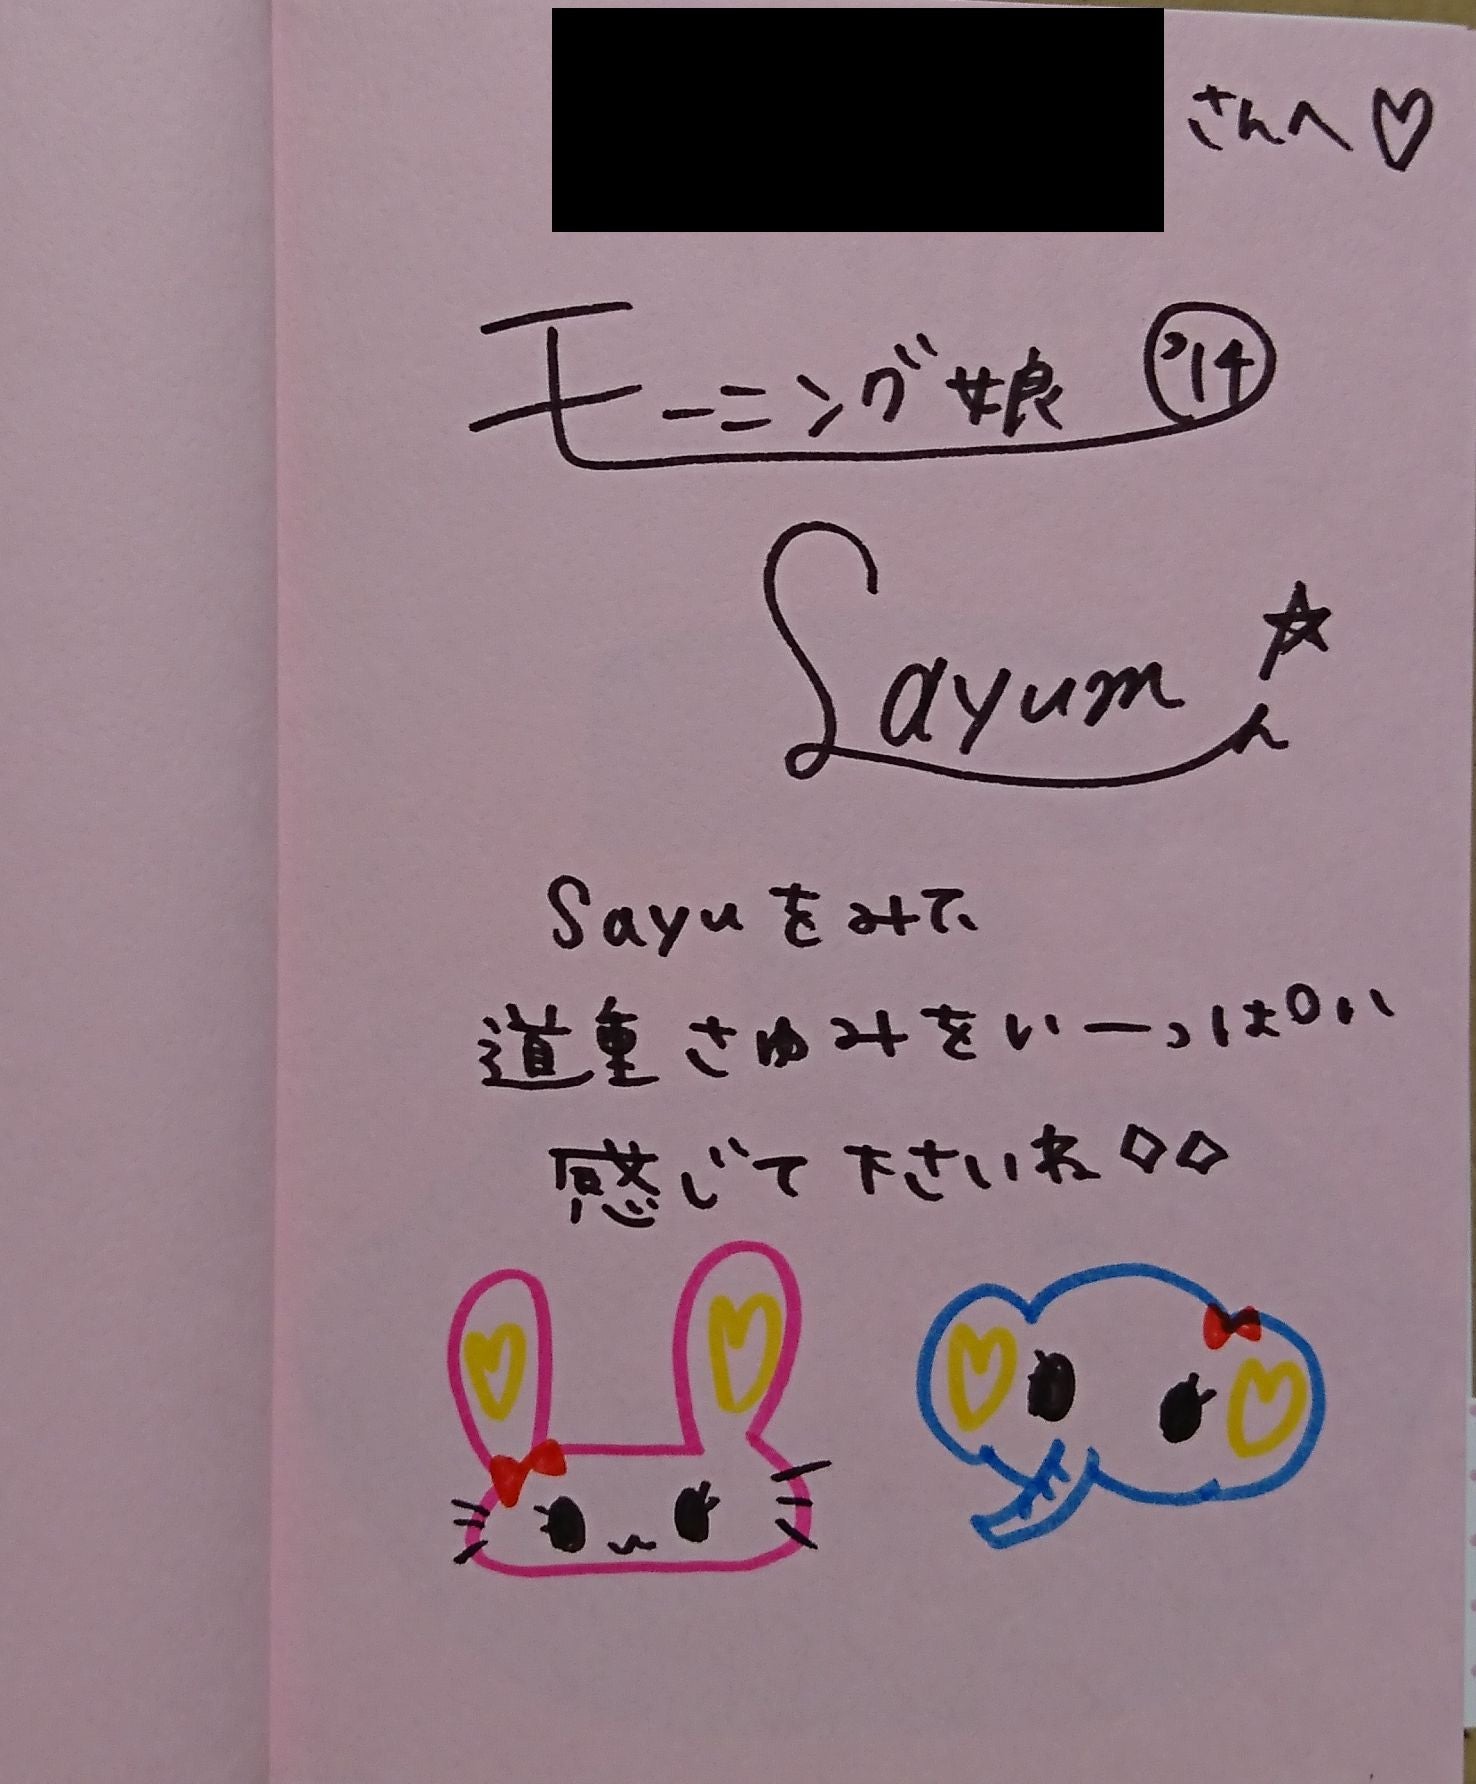 さんへ♡
モーニング娘 '14
Sayum☆
Sayuをみて、
道重さゆみをいーっぱい
感じて下さいね◇◇